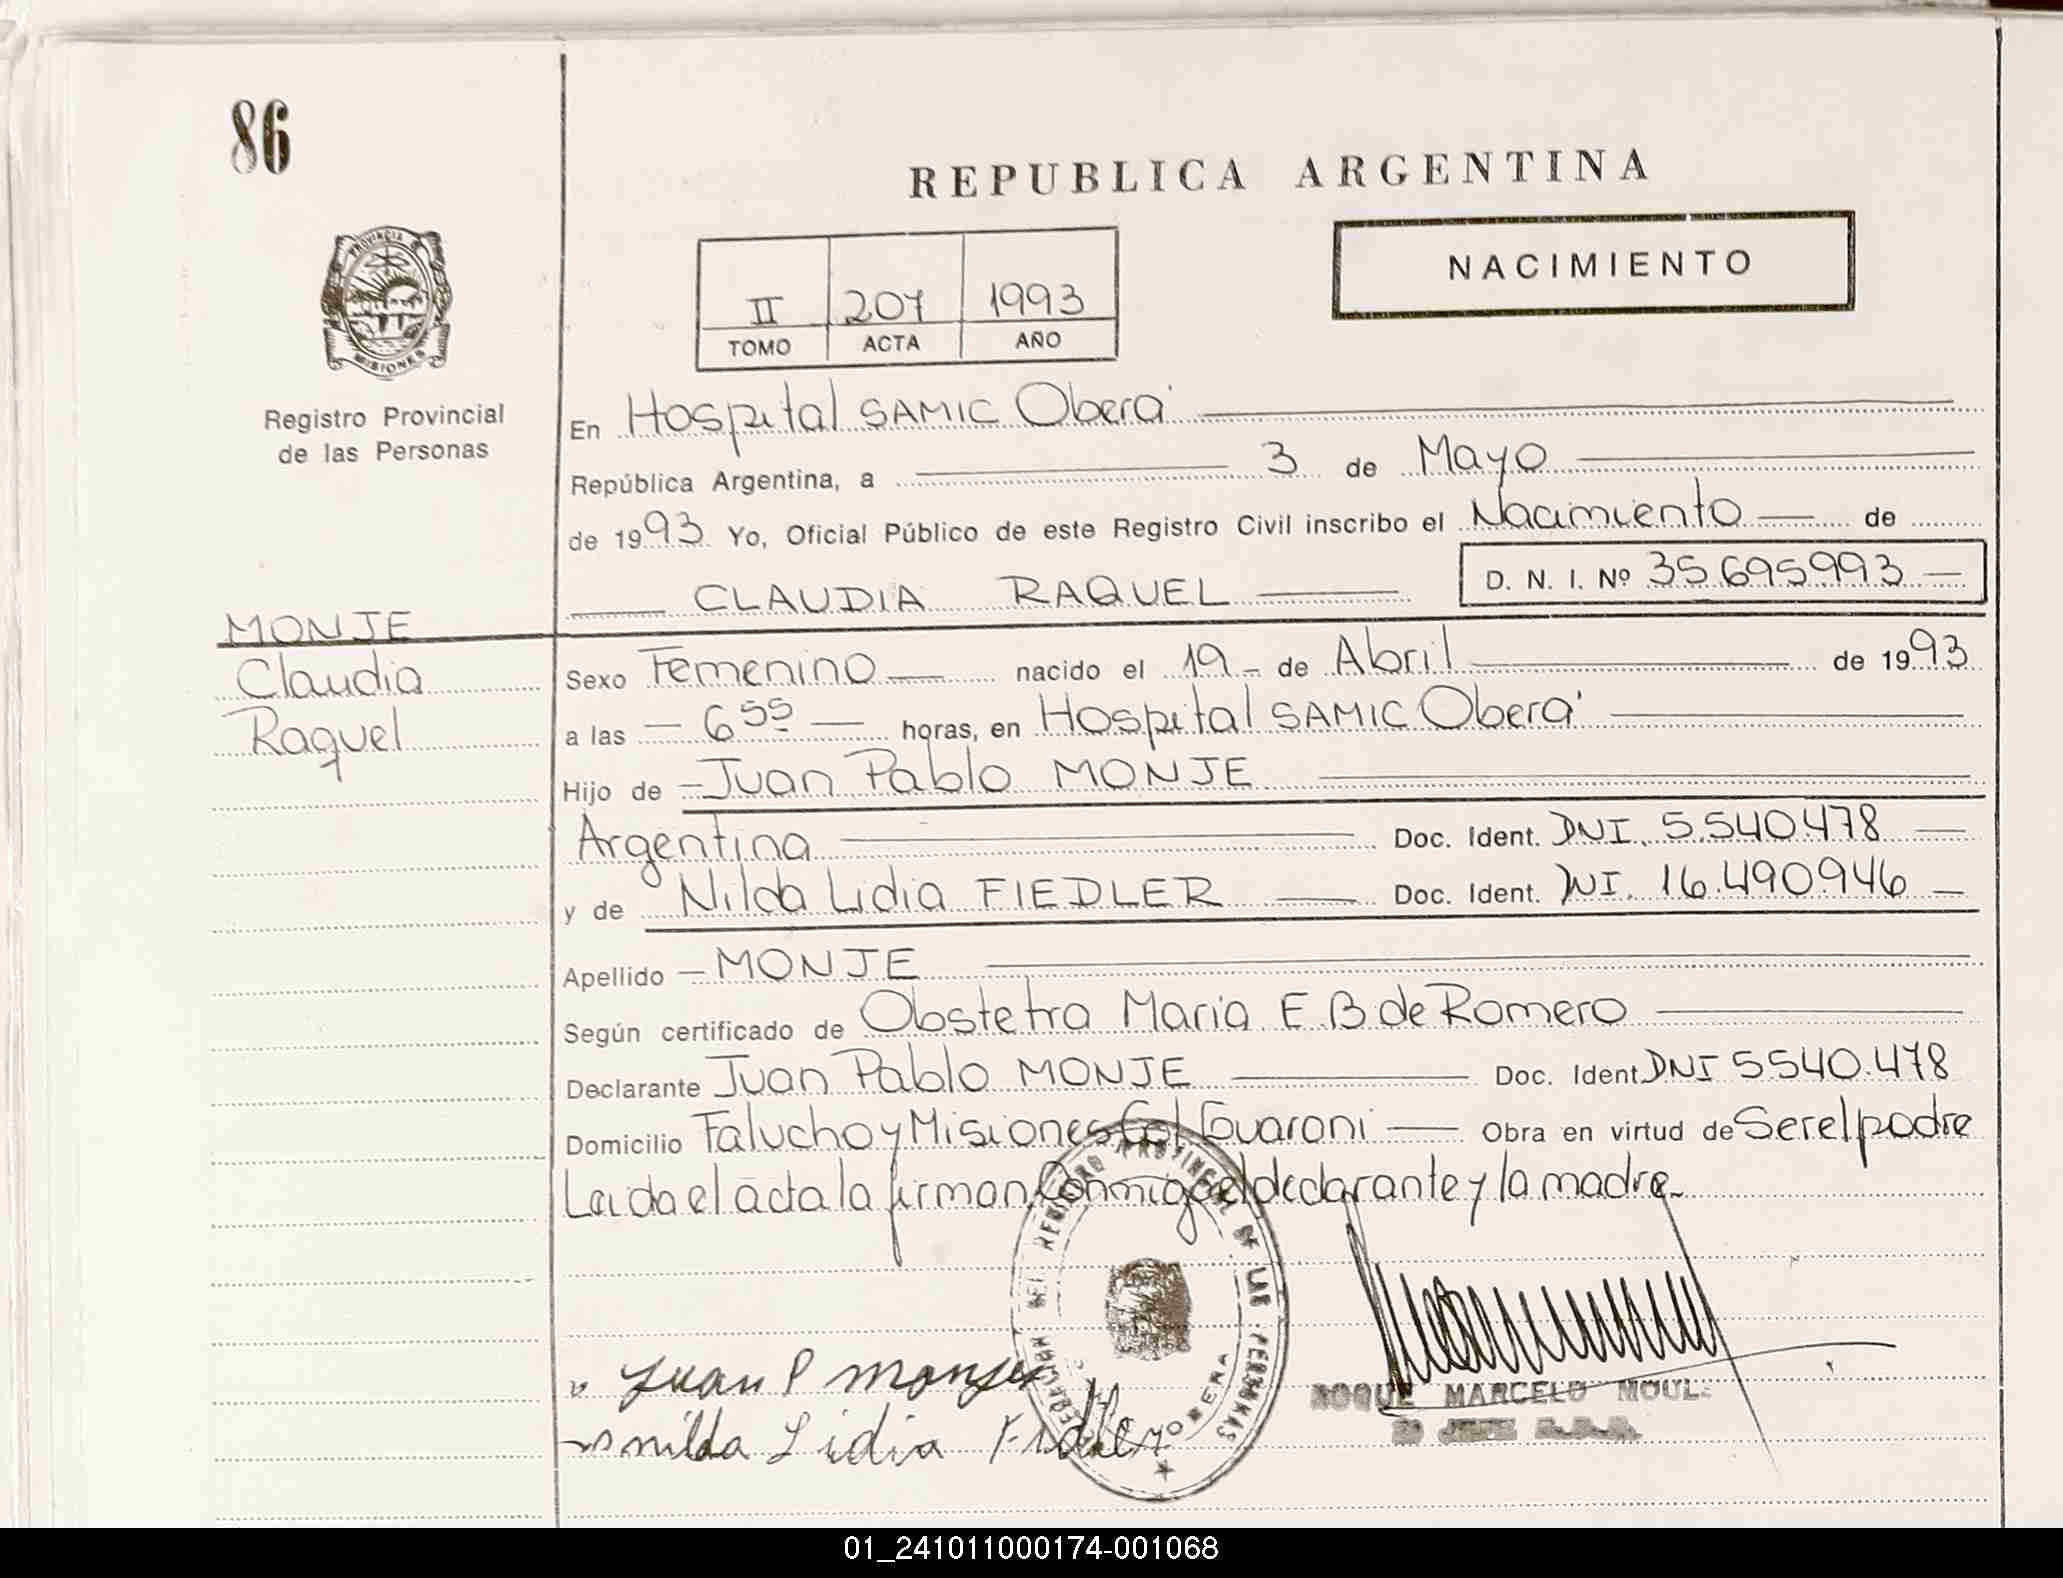 86
REPUBLICA ARGENTINA
NACIMIENTO
II 207 1993
TOMO ACTA AÑO
PROVINCIA DE MISIONES
Registro Provincial
de las Personas
En Hospital SAMIC Oberá
República Argentina, a 3 de Mayo
de 1993 Yo, Oficial Público de este Registro Civil inscribo el Nacimiento de
CLAUDIA RAQUEL D. N. I. Nº 35.695993
MONJE
Claudia
Raquel
Sexo Femenino nacido el 19 de Abril de 1993
a las 6 55 horas, en Hospital SAMIC Oberá
Hijo de Juan Pablo MONJE
Argentina Doc. Ident. DNI. 5.540.478
y de Nilda Lidia FIEDLER Doc. Ident. DNI. 16.490.946
Apellido MONJE
Según certificado de Obstetra Maria E.B de Romero
Declarante Juan Pablo MONJE Doc. Ident. DNI 5.540.478
Domicilio Falucho y Misiones Gol Guarani Obra en virtud de Ser el padre
Leida el acta la firman Conmigo el declarante y la madre
REGISTRO PROVINCIAL DE LAS PERSONAS
OBERA
Juan P Monje
nilda Lidia Fiedler
ROQUE MARCELO
01_241011000174-001068